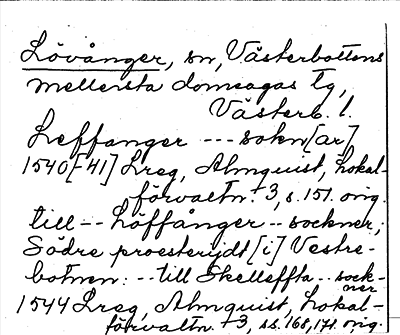 Lövånger, sn, Västerbottens
mellersta domsagas tg,
Västerb. l.
Leffanger --- sokn[ar]
1540[-41] Lreg, Almquist, Lokal-
förvaltn. 3, s. 151. orig.
till -- Löffånger -- sockner;
Södre proesterijdt [i] Vestre-
botnen: -- till Skelleffta -- sock-
ner
1544 Lreg, Almquist, Lokal-
förvaltn. 3, ss. 168, 171. orig.